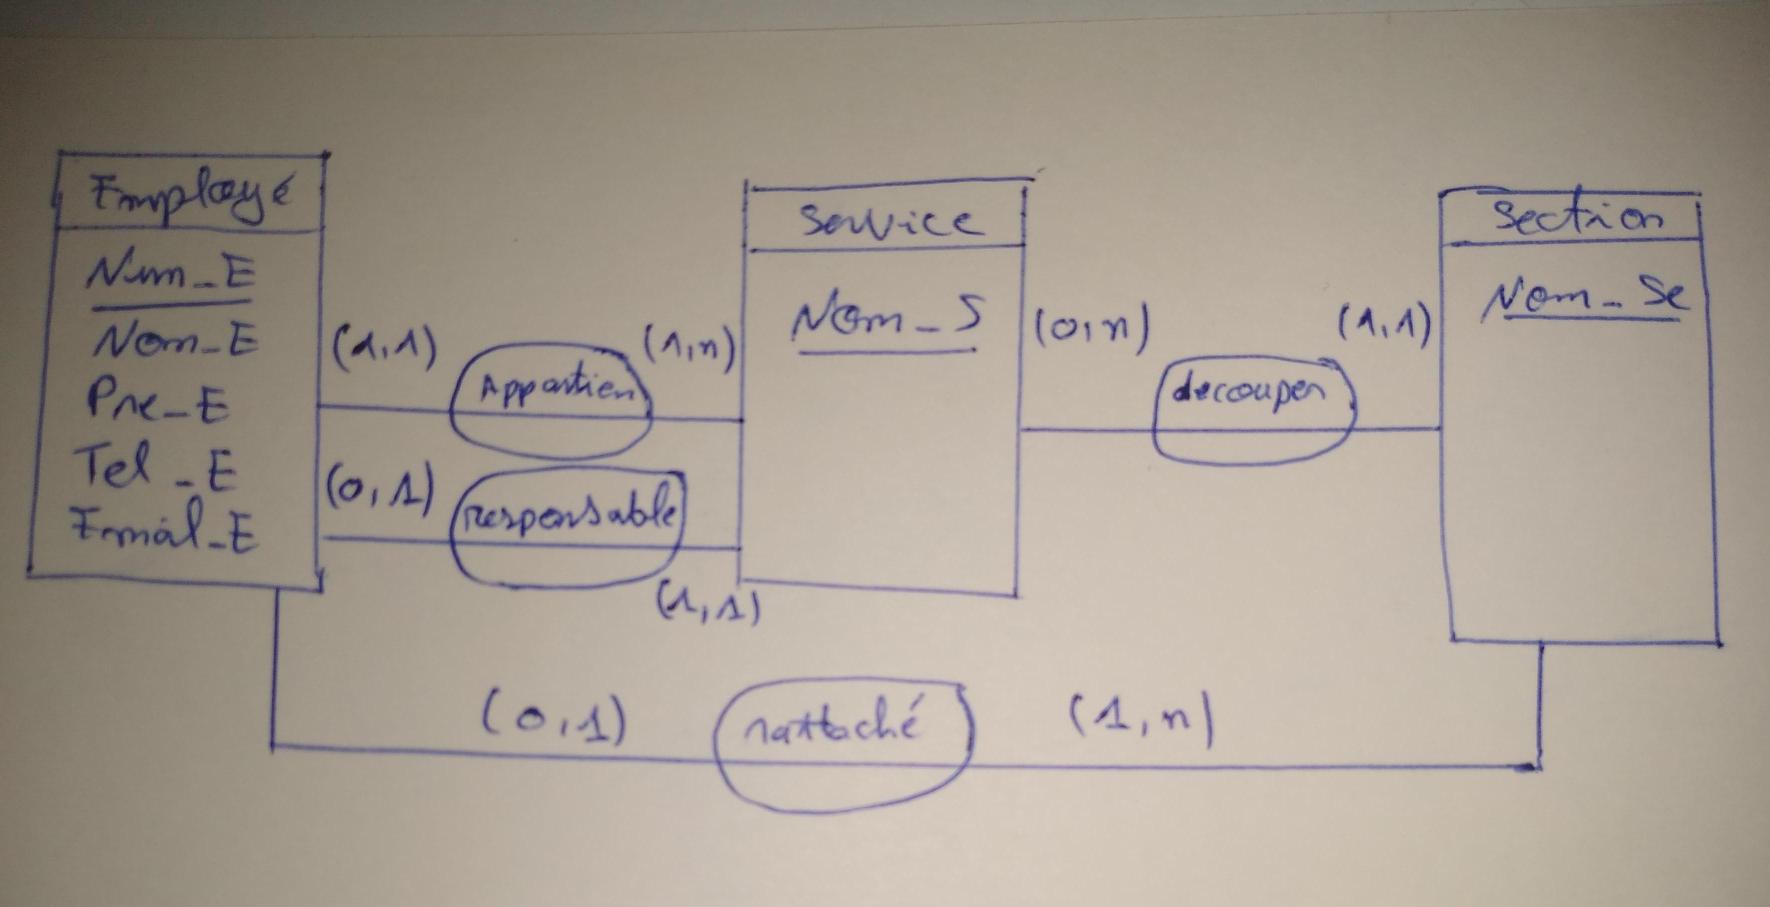 Employé
Num_E
Nom_E
Pre_E
Tel_E
Email_E
(1,1)
Appartien
(1,n)
(0,1)
responsable
(1,1)
Service
Nom_S
(0,n)
decouper
(1,1)
Section
Nom_Se
(0,1)
rattaché
(1,n)